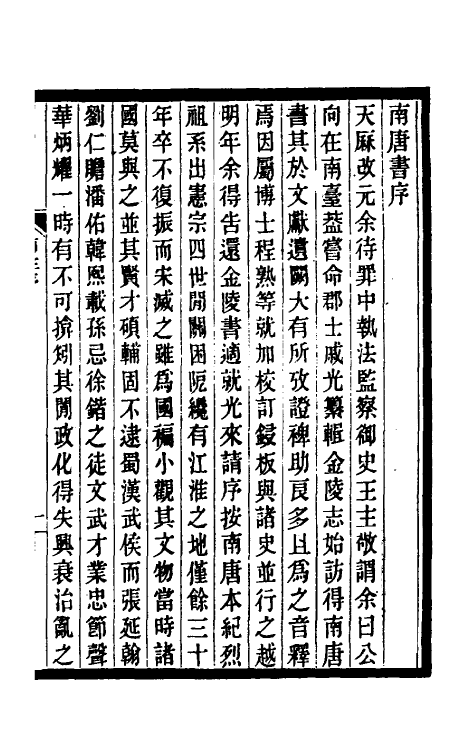 南唐書序
天厤改元余待罪中執法監察御史王主敬謂余曰公
向在南臺葢嘗命郡士戚光纂輯金陵志始訪得南唐
書其於文獻遺闕大有所攷證裨助良多且爲之音釋
焉因屬博士程熟等就加校訂鋟板與諸史並行之越
明年余得告還金陵書適就光來請序按南唐本紀烈
祖系出憲宗四世閒關困阨纔有江淮之地僅餘三十
年卒不復振而宋滅之雖爲國褊小觀其文物當時諸
國莫與之並其賢才碩輔固不逮蜀漢武侯而張延翰
劉仁贍潘佑韓熙載孫忌徐鍇之徒文武才業忠節聲
華炳耀一時有不可揜矧其閒政化得失興衰治亂之